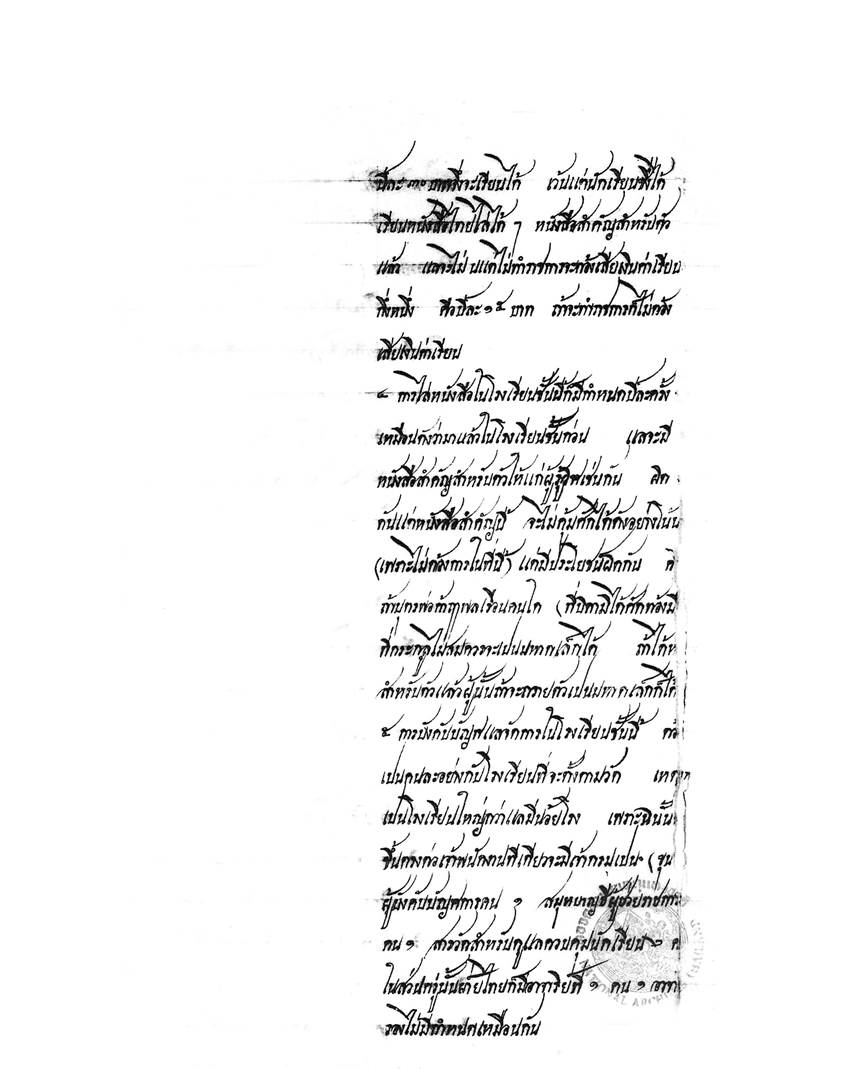 ปีละ ๓๐ บาทจึ่งจะเรียนได้ เว้นแต่นักเรียนซึ่งได้
เรียนหนังสือไทยไล่ได้ ๆ หนังสือสำคัญสำหรับตัว
แล้ว แลจะไม่ ไม่ทำราชการจะต้องเสียเงินค่าเรียน
กึ่งหนึ่ง คือปีละ ๑๕ บาท ถ้าจะทำราชการก็ไม่ต้อง
เสียเงินค่าเรียน
๔ การไล่หนังสือในโรงเรียนชั้นนี้ก็มีกำหนดปีละครั้ง
เหมือนดังว่ามาแล้วในโรงเรียนชั้นก่อน แลจะมี
หนังสือสำคัญสำหรับตัวให้แก่ผู้รู้ เช่นกัน ผิด
กันแต่หนังสือสำคัญนี้ จะไม่คุ้มสักได้ดังอย่างโน้น
(เพราะไม่ต้องการในที่นี้) แต่มีประโยชน์ผิดกัน คื
ถ้าบุตรพ่อค้าฤๅพลเรือนคนใด (ที่บิดามิได้สักท้องมื
ที่ตระกูลไม่สมควรจะเป็นมหาดเล็กได้ ถ้าได้ห
สำหรับตัวแล้วผู้นั้นถ้าจะถวายตัวเป็นมหาดเล็กก็ได้
๕ การบังคับบัญชาแลจัดการในโรงเรียนชั้นนี้ ต้อ
เป็นคนละอย่างกับโรงเรียนที่จะตั้งตามวัด
เป็นโรงเรียนใหญ่กว่าแลมีน้อยโรง เพราะฉนั้น
ขึ้นตรงต่อเจ้าพนักงานทีเดียวจะมีเจ้ากรมเปน (ขุน
ผู้บังคับบัญชาการคน ๑ สมุหบาญชีผู้ช่วยราชการ
คน ๑ สารวัดสำหรับดูแลควบคุมนักเรียน ๒ ค
ในส่วนครูนั้นฝ่ายไทยก็มีอาจาริย์ที่ ๑ คน ๑ อาจา
รองไม่มีกำหนดเหมือนกัน
NATIONAL ARCHIVES